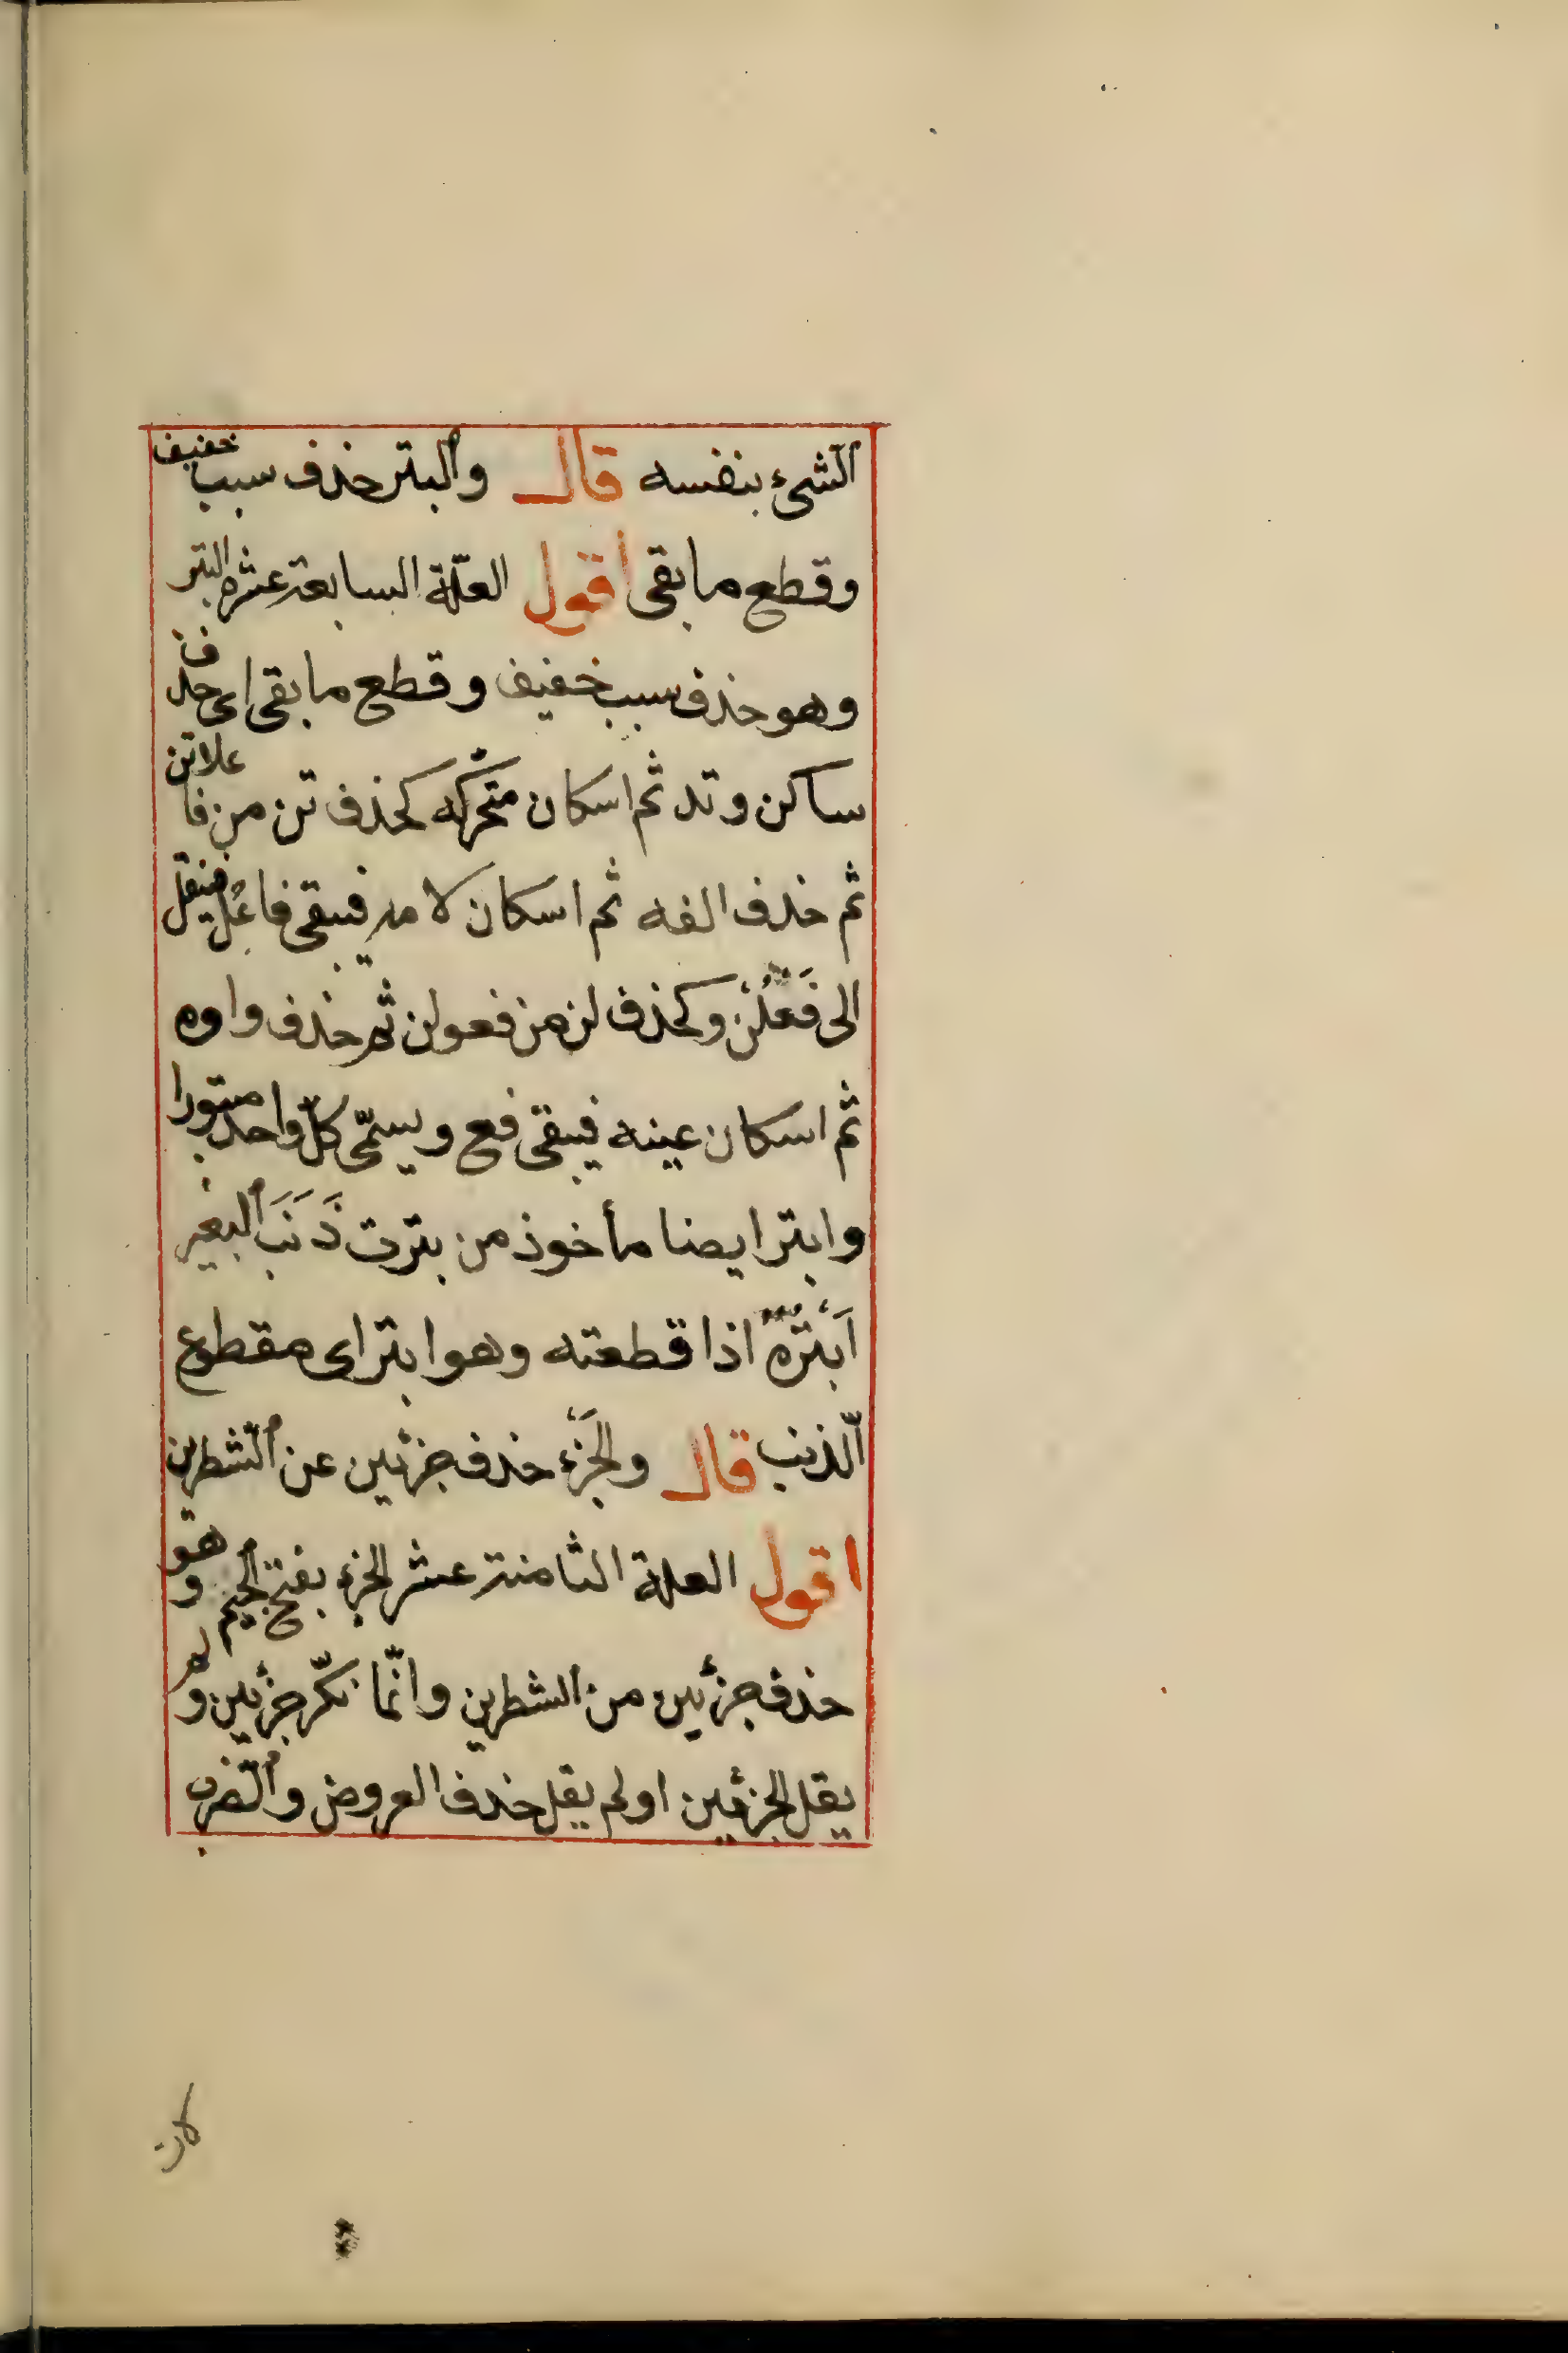 الشئ بنفسه قال والبتر حذف سبب خفيف
وقطع ما بقى اقول العلّة السابعة عشرة البتر
وهو حذف سبب خفيف وقطع ما بقى اى حذف
ساكن وتد ثم اسكان متحرّكه كحذف تن من فاعلاتن
ثم حذف الفه ثم اسكان لامه فيبقى فاعُلْ فينقل
الى فَعْلُنْ وكحذف لن من فعولن ثم حذف واوه
ثم اسكان عينه فيبقى فع ويسمّى كلّ واحد مبتورا
وابتر ايضا مأخوذ من بترت ذَنَبَ البعير
اَبْتُرُهُ اذا قطعته وهو ابتر اى مقطوع
الّذنب قال والجَزْء حذف جزئين عن الشّطرين
اقول العلة الثامنة عشر الجزء بفتح الجيم وهو
حذف جزئين من الشطرين وانّما نكّر جزئين ولم
يقل الجزئين او لم يقل حذف العروض والضّرب